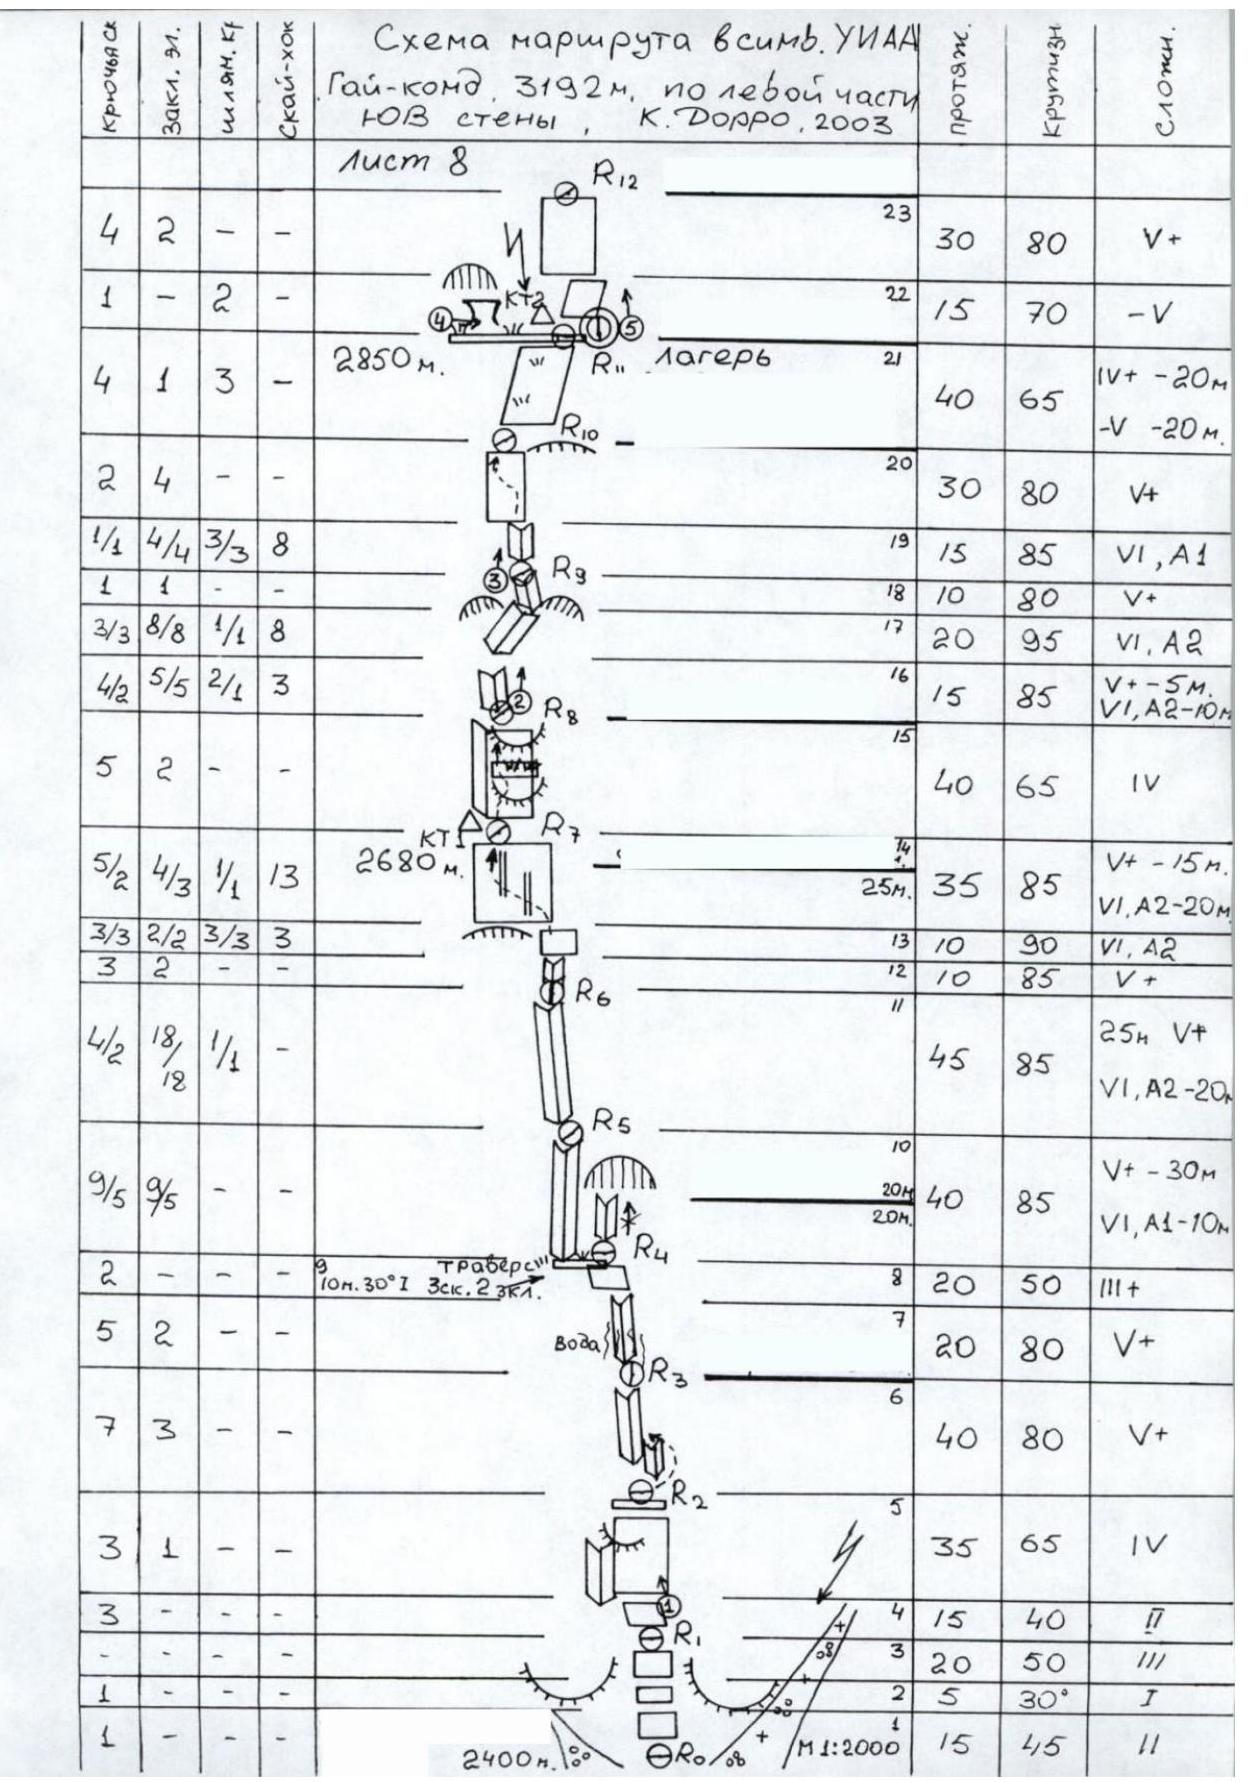 крючья ск
закл. эл.
шлям. кр
скай-хок
Схема маршрута в симв. УИАА
Гай-комд. 3192 м. по левой части
ЮВ стены, К. Дорро, 2003
протяж.
крутизн
сложн.
лист 8
R12
23
4 2 - - 30 80 V+
22
1 - 2 - КТ2 15 70 -V
4 5
21
2850 м. R11 лагерь
4 1 3 - 40 65 IV+ -20м
-V -20м.
R10
20
2 4 - - 30 80 V+
19
1/1 4/4 3/3 8 15 85 VI, A1
3 R9
18
1 1 - - 10 80 V+
17
3/3 8/8 1/1 8 20 95 VI, A2
16
4/2 5/5 2/1 3 15 85 V+ -5м.
VI, A2-10м
2 R8
15
5 2 - - 40 65 IV
КТ1 R7
14
2680 м.
5/2 4/3 1/1 13 25м. 35 85 V+ -15м.
VI, A2-20м
13
3/3 2/2 3/3 3 10 90 VI, A2
12
3 2 - - 10 85 V+
R6
11
4/2 18/18 1/1 - 45 85 25м V+
VI, A2-20м
R5
10
9/5 9/5 - - 20м 40 85 V+ -30м
20м. VI, A1-10м
R4
9 траверс
10м. 30° I 3ск. 2 зкл.
8
2 - - - 20 50 III+
7
5 2 - - вода 20 80 V+
R3
6
7 3 - - 40 80 V+
R2
5
3 1 - - 35 65 IV
1
4
3 - - - 15 40 II
R1
3
- - - - 20 50 III
2
1 - - - 5 30° I
1
1 - - - 15 45 II
2400 м. R0 М 1:2000